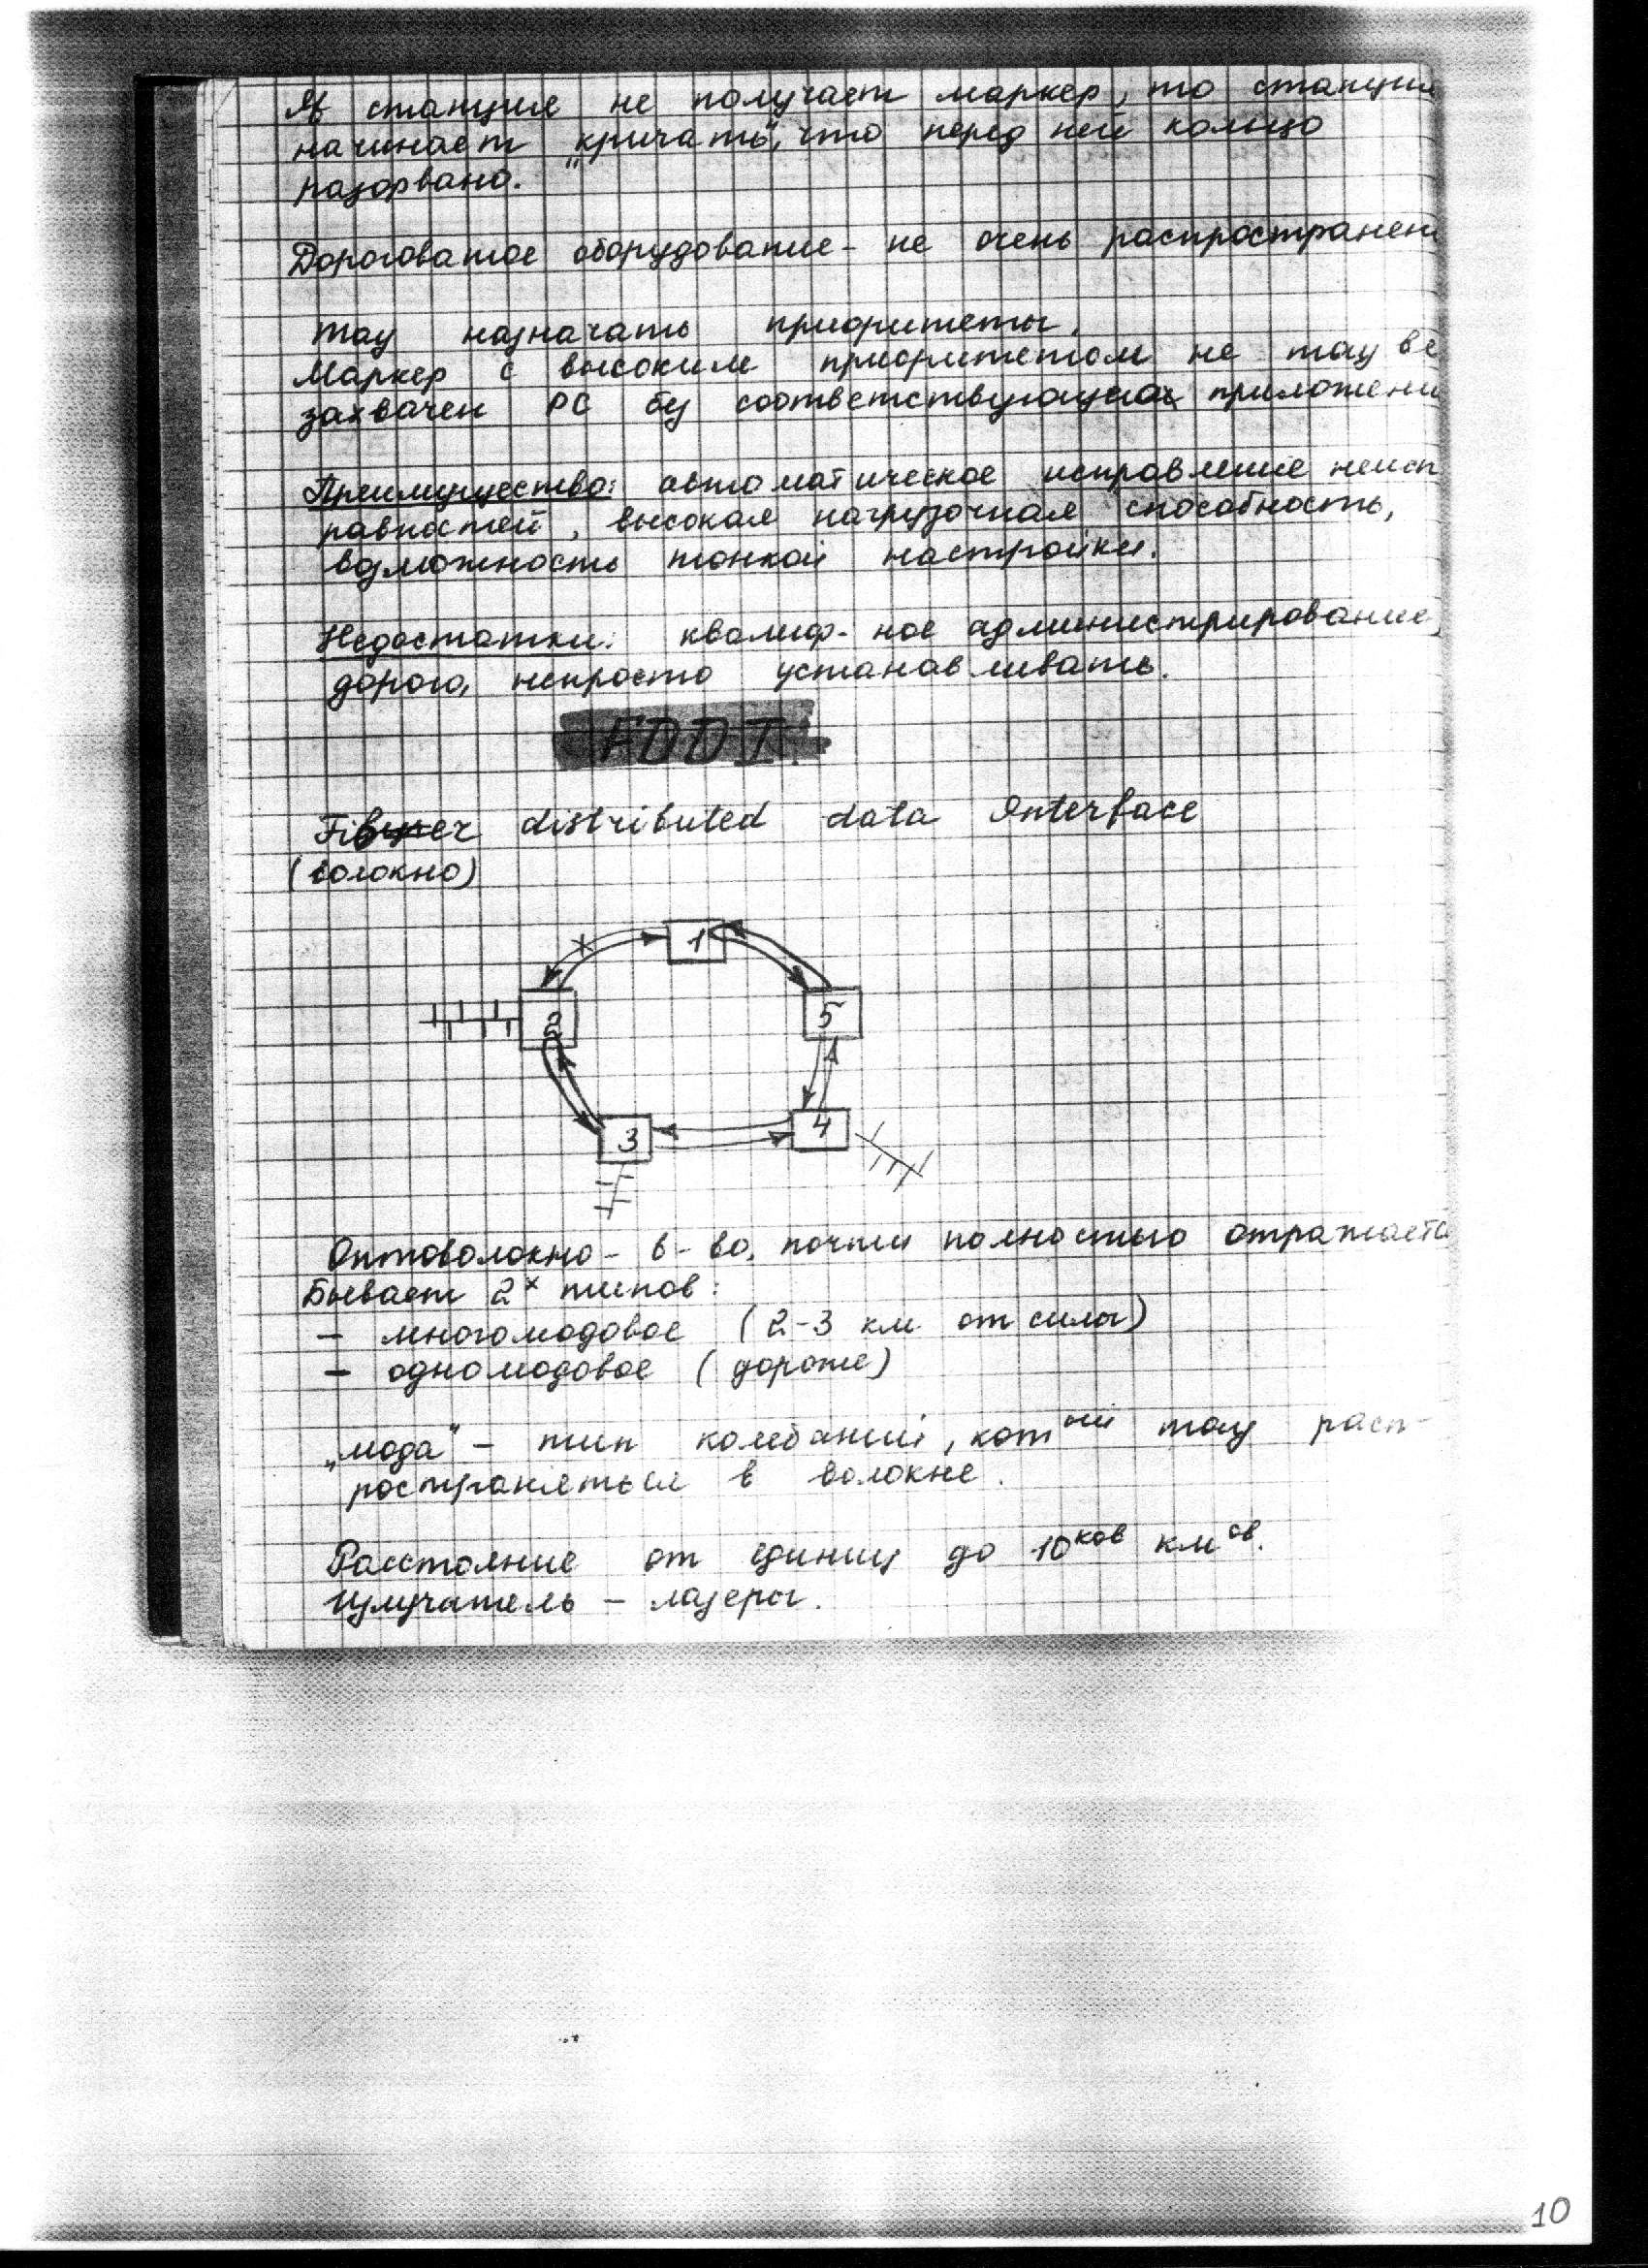 станция не получает маркер, то станция
начинает „кричать", что перед ней кольцо
разорвано.
Дороговатое оборудование - не очень распространен
назначать приоритеты.
Маркер с высоким приоритетом не
захвачен РС приложени
Преимущество: автоматическое исправление неисп
равностей, высокая нагрузочная способность,
возможность тонкой настройки.
Недостатки: квалиф-ное администрирование,
дорого, непросто устанавливать.
FDDI
Fiber distributed data Interface
(волокно)
1
2
5
3
4
Оптоволокно - в-во, почти полностью отражает
Бывает 2х типов:
- многомодовое (2-3 км от силы)
- одномодовое (дороже)
„мода" - тип колебаний, котый расп-
ространяться в волокне.
Расстояние от единиц до 10ков кмов.
Излучатель - лазеры.
10